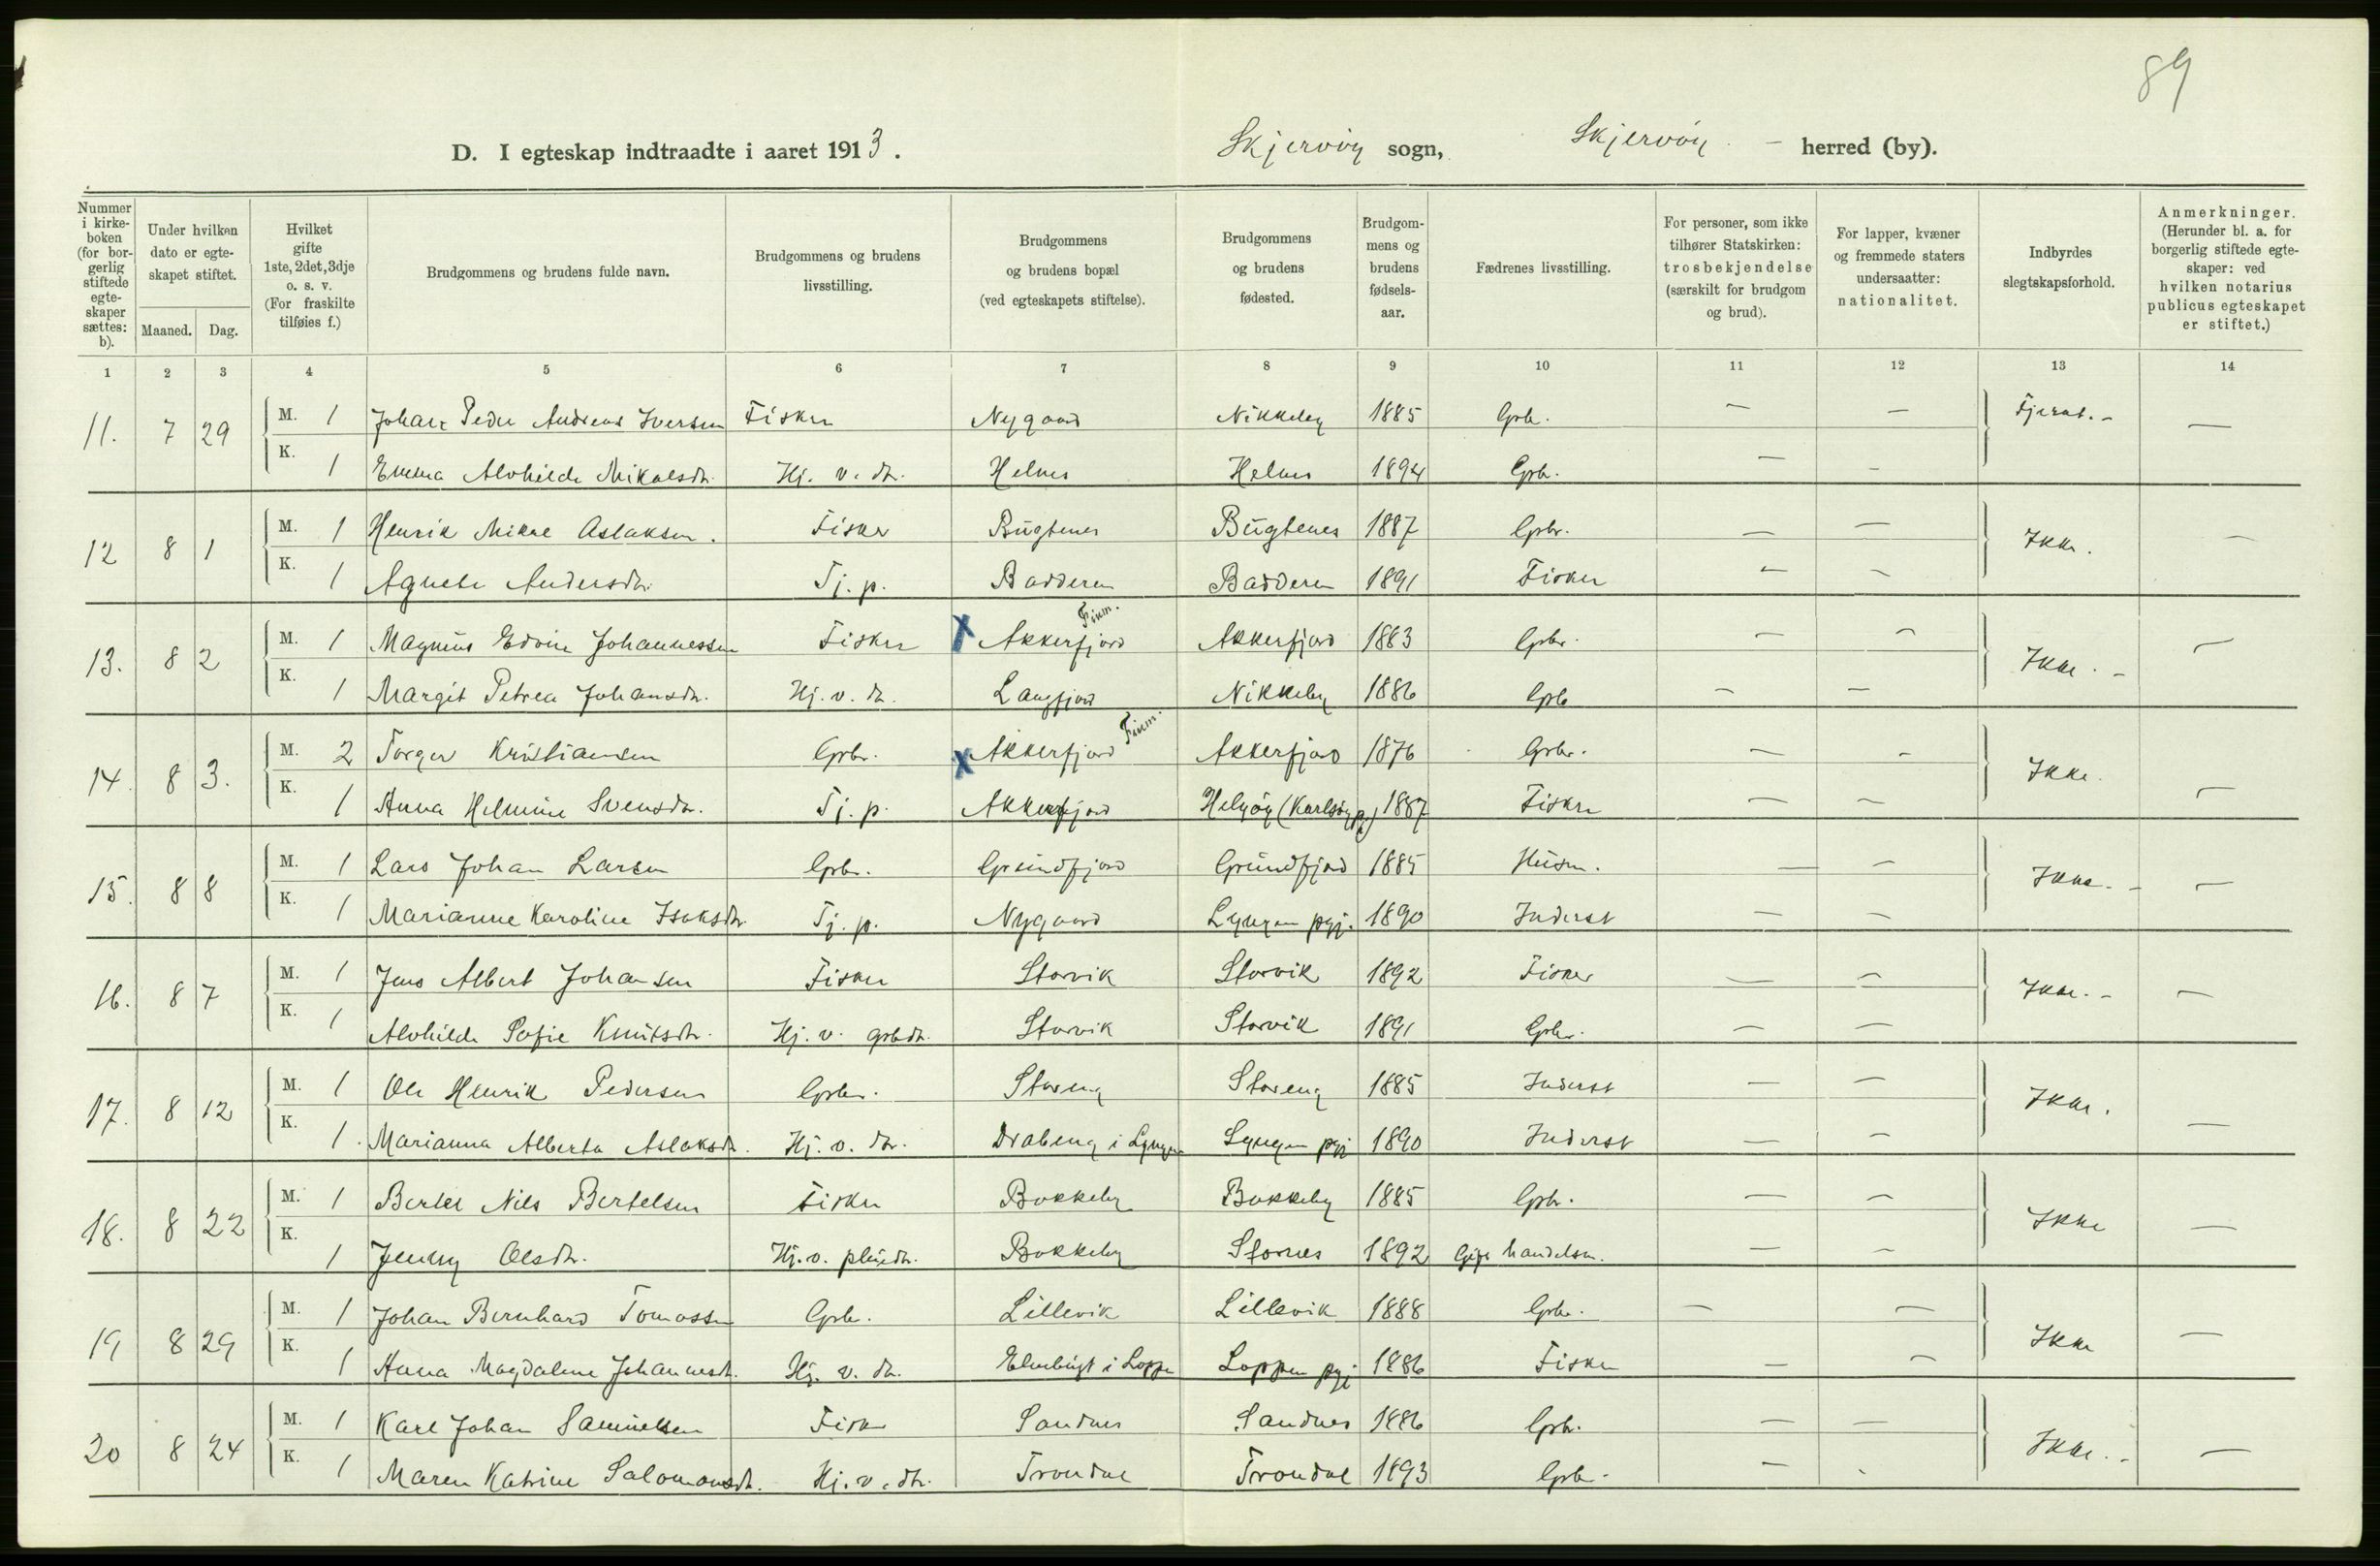 89
D. I egteskap indtraadte i aaret 1913. Skjervöy sogn, Skjervöy - herred (by).
Nummer i kirkeboken (for borgerlig stiftede egteskaper sættes: b).
Under hvilken dato er egteskapet stiftet.
Maaned. Dag.
Hvilket gifte 1ste, 2det, 3dje o. s. v. (For fraskilte tilføies f.)
Brudgommens og brudens fulde navn.
Brudgommens og brudens livsstilling.
Brudgommens og brudens bopæl (ved egteskapets stiftelse).
Brudgommens og brudens fødested.
Brudgommens og brudens fødselsaar.
Fædrenes livsstilling.
For personer, som ikke tilhører Statskirken: trosbekjendelse (særskilt for brudgom og brud).
For lapper, kvæner og fremmede staters undersaatter: nationalitet.
Indbyrdes slegtskapsforhold.
Anmerkninger. (Herunder bl. a. for borgerlig stiftede egteskaper: ved hvilken notarius publicus egteskapet er stiftet.)
1 2 3 4 5 6 7 8 9 10 11 12 13 14
11. 7 29 M. 1 Johan Peder Andreas Iversen Fisker Nygaard Nikkeby 1885 Grb. — — Fjernt. - —
K. 1 Emma Alvhilde Mikalsdr. Hj. v. dr. Helnes Helnes 1894 Grb. — -
12 8 1 M. 1 Henrik Mikal Aslaksen. Fisker Bugtenes Bugtenes 1887 Grbr. — — Ikke. —
K. 1 Agnete Andersdr. Tj. p. Badderen Badderen 1891 Fisker - -
13. 8 2 M. 1 Magnus Edvin Johannessen Fisker X Akkerfjord Finm. Akkerfjord 1883 Gbr. — — Ikke. - —
K. 1 Margit Petrea Johansdr. Hj. v. dr. Langfjord Nikkeby 1886 Grb — —
14. 8 3. M. 2 Torger Kristiansen Grbr. X Akkerfjord Finm. Akkerfjord 1876 Grbr. — - Ikke. —
K. 1 Anna Helmine Svensdr. Tj. p. Akkerfjord Helgöy (Karlsöy pgj) 1887 Fisker — —
15. 8 8 M. 1 Lars Johan Larsen Grbr. Grundfjord Grundfjord 1885 Husm. — — Ikke. - —
K. 1 Marianne Karoline Isaksdr. Tj. p. Nygaard Lyngen pgj. 1890 Inderst — —
16. 8 7 M. 1 Jens Albert Johansen Fisker Storvik Storvik 1892 Fisker — — Ikke. - —
K. 1 Alvhilde Sofie Knutsdr. Hj. v. grbdr. Storvik Storvik 1891 Grbr. — —
17. 8 12 M. 1 Ole Henrik Pedersen Grbr. Storeng Storeng 1885 Inderst — — Ikke. —
K. 1. Marianna Alberta Aslaksdr. Hj. v. dr. Drabeng i Lyngen Lyngen pgj 1890 Inderst — —
18. 8 22 M. 1 Bertel Nils Bertelsen Fisker Bakkeby Bakkeby 1885 Grb. — — Ikke —
K. 1 Jenny Olsdr. Hj. v. pleiedr. Bakkeby Stornes 1892 handelsm. — -
19 8 29 M. 1 Johan Bernhard Tomassen Grb. Lillevik Lillevik 1888 Grbr. — — Ikke —
K. 1 Anna Magdalene Johannesdr. Hj. v. dr. i Loppa Loppen pgj 1886 Fisker — —
20 8 24 M. 1 Karl Johan Samuelsen Fisker Sandnes Sandnes 1886 Grb. — — Ikke. - —
K. 1 Maren Katrine Salomonsdr. Hj. v. dr. Trondal Trondal 1893 Grb. — -